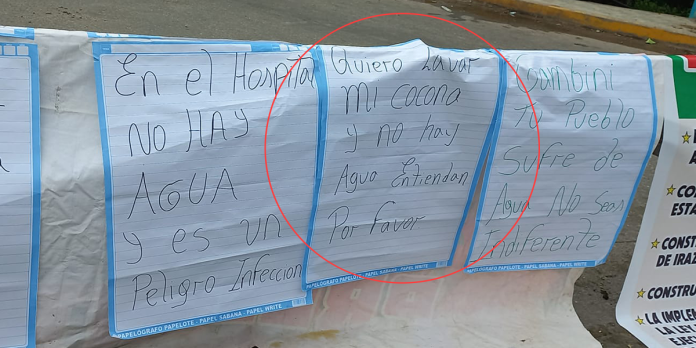 En el Hospital
NO HAY
AGUA
y es un
Peligro Infeccion
PAPELOGRAFO PAPELOTE - PAPEL SABANA - PAPEL WRITE
Quiero Lavar
mi cocona
y no hay
Agua Entiendan
Por favor
PAPELOGRAFO PAPELOTE - PAPEL SABANA - PAPEL WRITE
Gambini
Tu Pueblo
Sufre de
Agua No Seas
Indiferente
PAPELOGRAFO PAPELOTE - PAPEL SABANA - PAPEL WRITE
CONST
DE IRAZ
CONSTRU
LA IMPLEM
LA LE